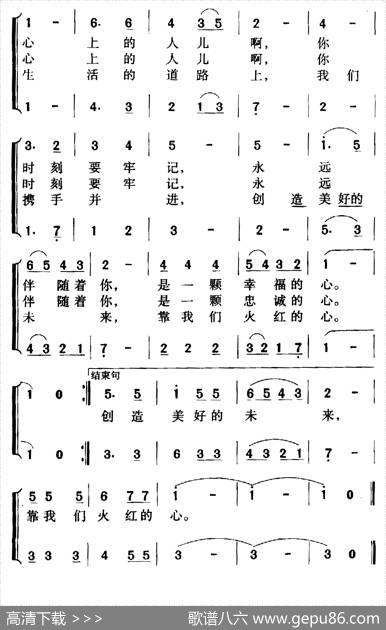 1 - 6. 6 4 3 5 2 - 4 -
心 上 的 人 儿 啊, 你
心 上 的 人 儿 啊, 你
生 活 的 道 路 上, 我 们
1 - 4. 3 2 1 3 7 - 2 -
3. 2 3 4 5 - 5 - i. 5
时 刻 要 牢 记, 永 远
时 刻 要 牢 记, 永 远
携 手 并 进, 创 造 美 好 的
1. 7 1 2 3 - 2 - 5. 3
6 5 4 3 2 - 4 4 4 5 4 3 2 1 -
伴 随 着 你, 是 一 颗 幸 福 的 心。
伴 随 着 你, 是 一 颗 忠 诚 的 心。
未 来, 靠 我 们 火 红 的 心。
4 3 2 1 7 - 2 2 2 3 2 1 7 1 -
结束句
1 0 5. 5 i 5 5 6 5 4 3 2 -
创 造 美 好 的 未 来,
1 0 3. 3 6 3 3 4 3 2 1 7 -
5 5 5 6 7 7 i - i - i 0
靠 我 们 火 红 的 心。
3 3 3 4 5 5 3 - 3 - 3 0
高清下载 >>> 歌谱八六 www.gepu86.com